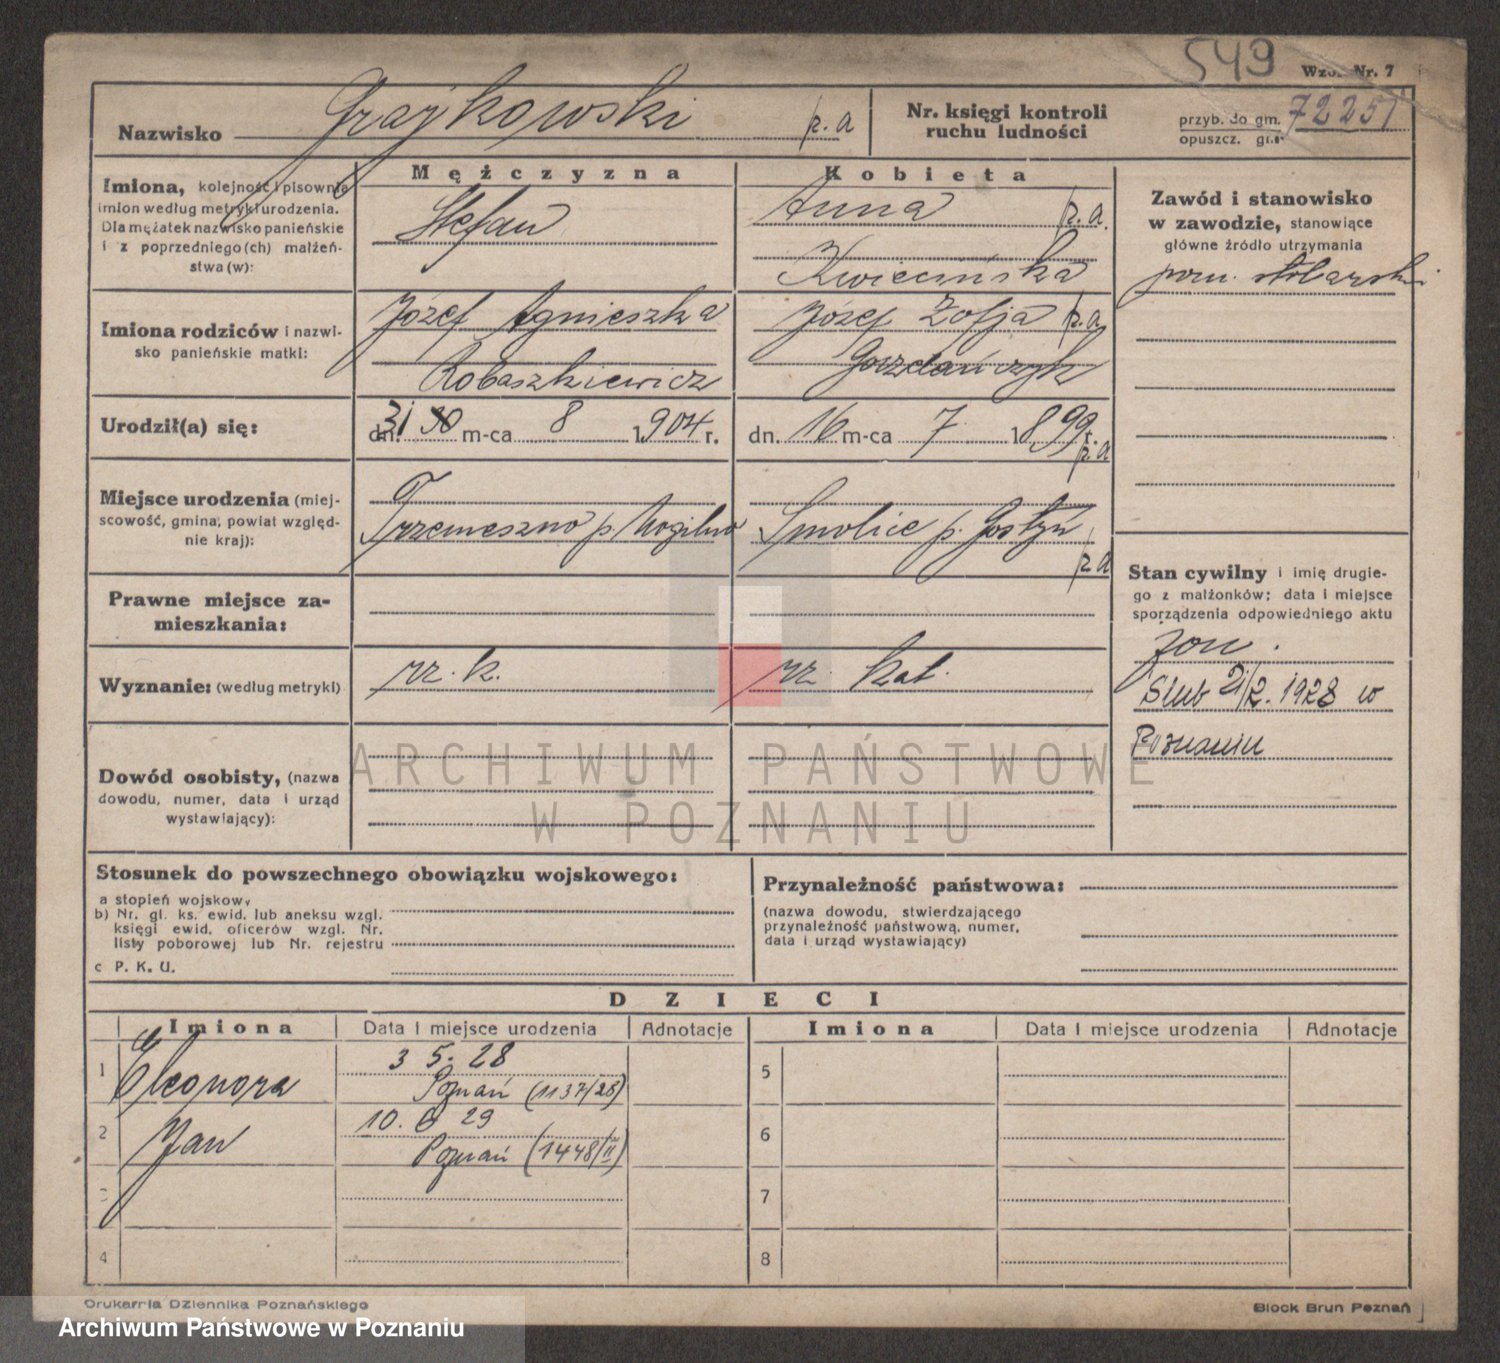 549
Wzór Nr. 7
Nazwisko Grajkowski p. a
Nr. księgi kontroli ruchu ludności
przyb. do gm. 72251
opuszcz. gm.
Mężczyzna
Kobieta
Imiona, kolejność i pisownia
imion według metryki urodzenia.
Dla mężatek nazwisko panieńskie
i z poprzedniego (ch) małżeń-
stwa (w):
Stefan
Anna p. a.
Kwiecińska
Zawód i stanowisko
w zawodzie, stanowiące
główne źródło utrzymania
pom. stolarski
Imiona rodziców i nazwi-
sko panieńskie matki:
Józef Agnieszka
Robaszkiewicz
Józef Zofja p. a
Gorzelańczyk
Urodził(a) się:
dn. 31 30 m-ca 8 1904 r.
dn. 16 m-ca 7 1899 r.
p. a
Miejsce urodzenia (miej-
scowość, gmina, powiat względ-
nie kraj):
Trzemeszno p. Mogilno
Smolice p. Gostyń
p. a
Stan cywilny i imię drugie-
go z małżonków; data i miejsce
sporządzenia odpowiedniego aktu
żon.
Ślub 21/2. 1928 w
Poznaniu
Prawne miejsce za-
mieszkania:
Wyznanie: (według metryki)
rz. k.
rz. kat.
Dowód osobisty, (nazwa
dowodu, numer, data i urząd
wystawiający):
ARCHIWUM PAŃSTWOWE
W POZNANIU
Stosunek do powszechnego obowiązku wojskowego:
a stopień wojskowy
b) Nr. gl. ks. ewid. lub aneksu wzgl.
księgi ewid. oficerów wzgl. Nr.
listy poborowej lub Nr. rejestru
c P. K. U.
Przynależność państwowa:
(nazwa dowodu, stwierdzającego
przynależność państwową, numer,
data i urząd wystawiający)
DZIECI
Imiona Data i miejsce urodzenia Adnotacje Imiona Data i miejsce urodzenia Adnotacje
1 Eleonora 3 5. 28
Poznań (1137/28)
5
2 Jan 10. 6 29
Poznań (1448/II)
6
3
7
4
8
Drukarnia Dziennika Poznańskiego
Block Brun Poznań
Archiwum Państwowe w Poznaniu